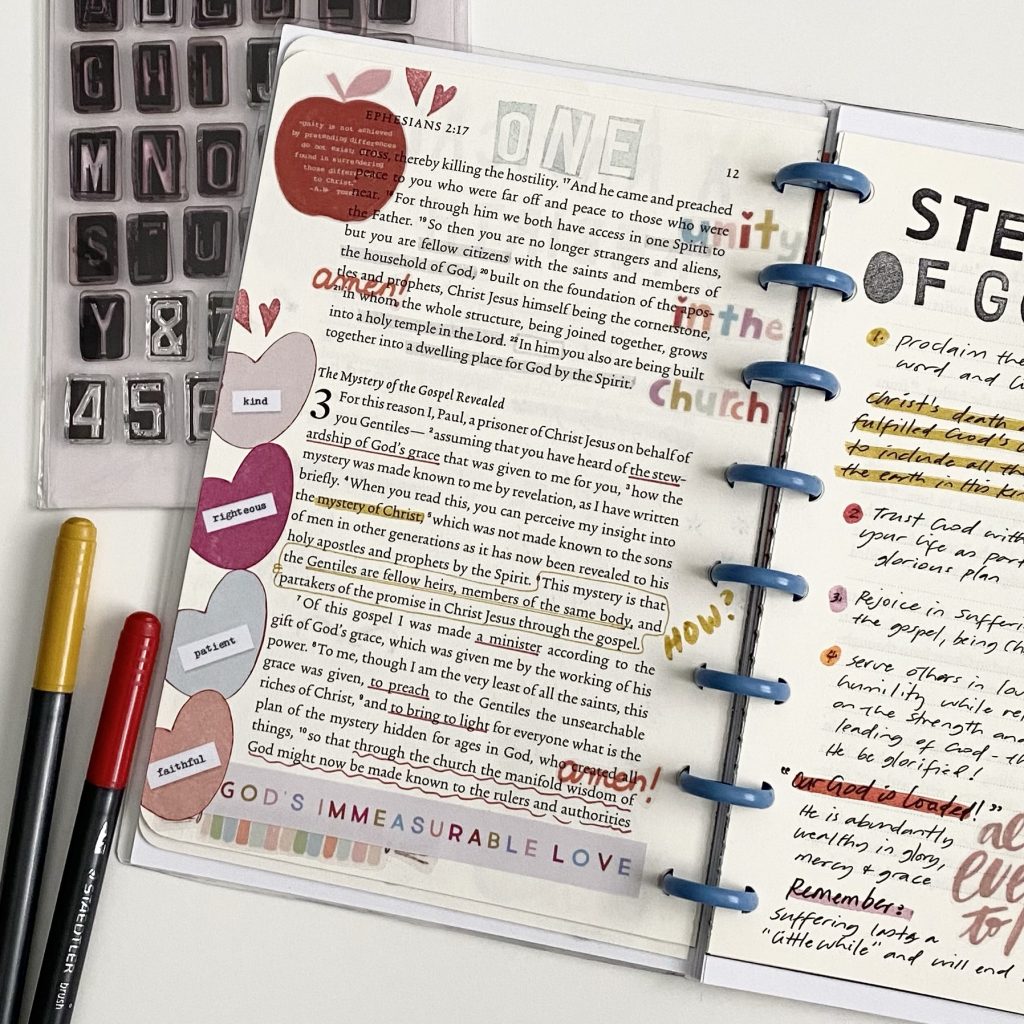 C H I J
M N O
S T U
Y & Z
4 5 6
EPHESIANS 2:17
ONE
12
"unity is not achieved
by pretending differences
do not exist
found in surrendering
those differences
to Christ."
-A.W
cross, thereby killing the hostility. 17 And he came and preached
peace to you who were far off and peace to those who were
near. 18 For through him we both have access in one Spirit to
the Father. 19 So then you are no longer strangers and aliens,
but you are fellow citizens with the saints and members of
the household of God, 20 built on the foundation of the apos-
tles and prophets, Christ Jesus himself being the cornerstone,
21 in whom the whole structure, being joined together, grows
into a holy temple in the Lord. 22 In him you also are being built
together into a dwelling place for God by the Spirit.
unity
in the
Church
amen!
The Mystery of the Gospel Revealed
3 For this reason I, Paul, a prisoner of Christ Jesus on behalf of
you Gentiles— 2 assuming that you have heard of the stew-
ardship of God's grace that was given to me for you, 3 how the
mystery was made known to me by revelation, as I have written
briefly. 4 When you read this, you can perceive my insight into
the mystery of Christ, 5 which was not made known to the sons
of men in other generations as it has now been revealed to his
holy apostles and prophets by the Spirit. 6 This mystery is that
the Gentiles are fellow heirs, members of the same body, and
partakers of the promise in Christ Jesus through the gospel.
7 Of this gospel I was made a minister according to the
gift of God's grace, which was given me by the working of his
power. 8 To me, though I am the very least of all the saints, this
grace was given, to preach to the Gentiles the unsearchable
riches of Christ, 9 and to bring to light for everyone what is the
plan of the mystery hidden for ages in God, who created all
things, 10 so that through the church the manifold wisdom of
God might now be made known to the rulers and authorities
HOW?
amen!
kind
righteous
patient
faithful
GOD'S IMMEASURABLE LOVE
STAEDTLER brush
STE
OF GO
1. Proclaim the
word and
Christ's death
fulfilled God's
to include all th
the earth in this
2. Trust God with
your life as part
glorious plan
3. Rejoice in suffering
the gospel, being
4. Serve others in lo
humility while
on the strength and
leading of God - th
He be glorified!
"Our God is loaded!"
He is abundantly
wealthy in glory,
mercy & grace
Remember:
suffering lasts a
"little while" and will end